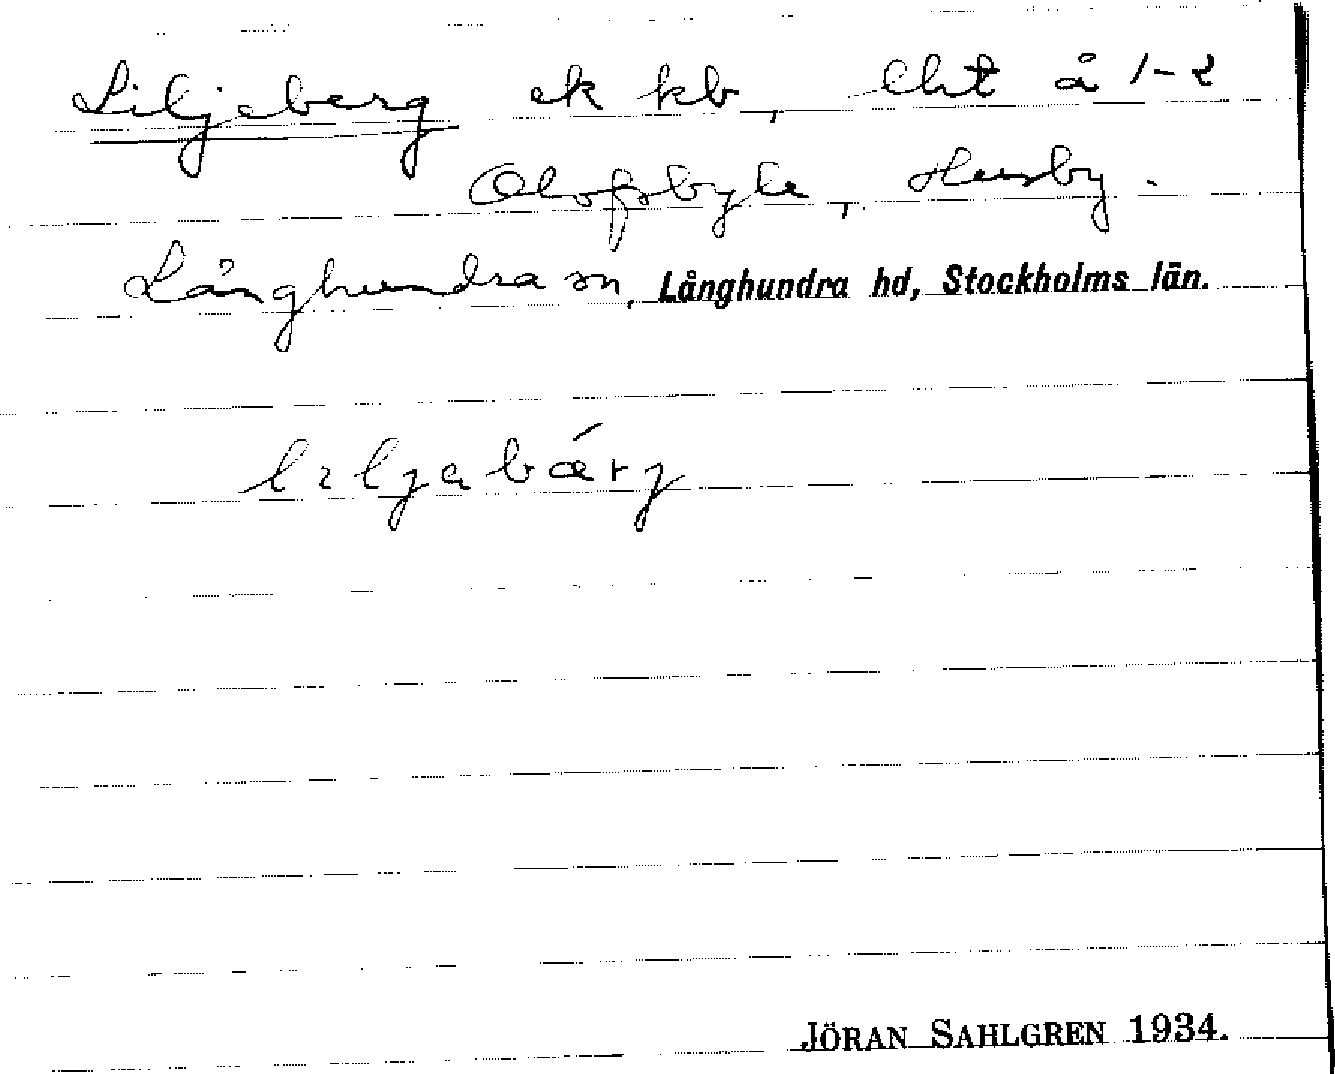 Liljeberg ek kb, lht å 1-2
Olofsbyle, Husby.
Långhundra sn, Långhundra hd, Stockholms län.
lɩljabærj
JÖRAN SAHLGREN 1934.